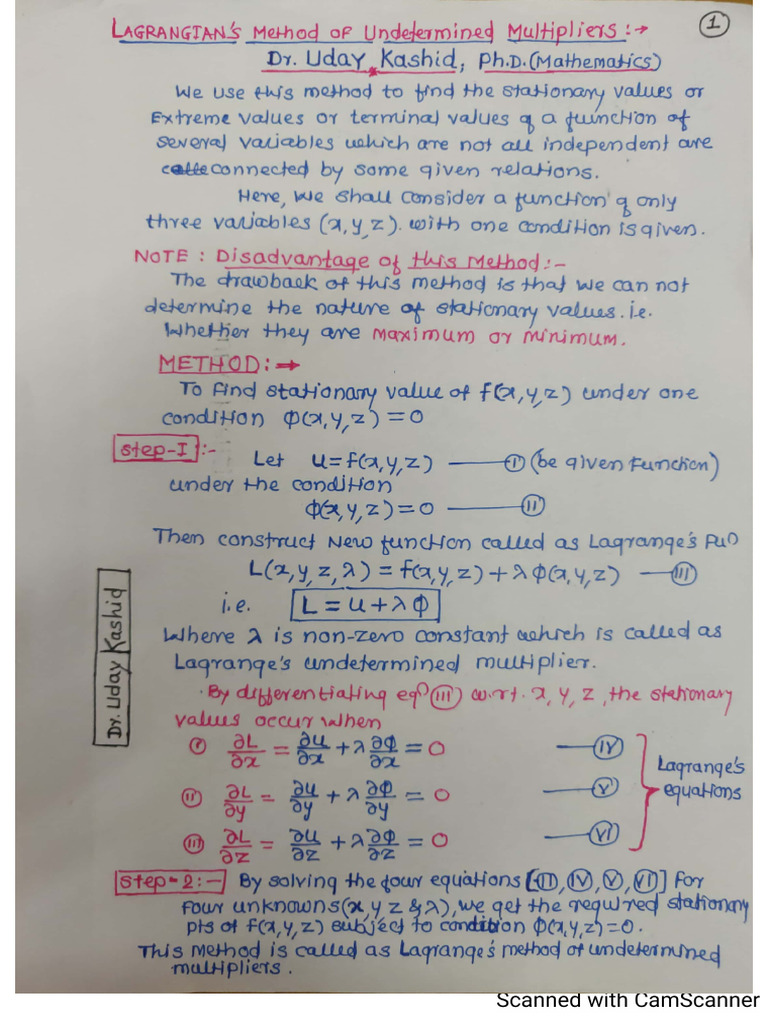 LAGRANGIAN'S Method OF Undetermined Multipliers :→ ①
Dr. Uday Kashid, Ph.D. (Mathematics)
We use this method to find the stationary values or
Extreme values or terminal values of a function of
several variables which are not all independent are
connected by some given relations.
Here, we shall consider a function of only
three variables (x, y, z). with one condition is given.
NOTE : Disadvantage of this Method :-
The drawback of this method is that we can not
determine the nature of stationary values. i.e.
Whether they are maximum or minimum.
METHOD: →
To find stationary value of f(x, y, z) under one
condition Φ(x, y, z) = 0
Step-I :- Let u = f(x, y, z) —— (i) (be given Function)
under the condition
Φ(x, y, z) = 0 —— (ii)
Then construct New function called as Lagrange's Fuⁿ
L(x, y, z, λ) = f(x, y, z) + λ Φ(x, y, z) — (iii)
i.e. L = u + λ Φ
Where λ is non-zero constant which is called as
Lagrange's undetermined multiplier.
By differentiating eqⁿ (iii) w.r.t. x, y, z, the stationary
values occur when
(i) ∂L/∂x = ∂u/∂x + λ ∂Φ/∂x = 0 — (iv)
(ii) ∂L/∂y = ∂u/∂y + λ ∂Φ/∂y = 0 — (v)
(iii) ∂L/∂z = ∂u/∂z + λ ∂Φ/∂z = 0 — (vi)
Lagrange's
equations
Step-2:- By solving the four equations [(ii), (iv), (v), (vi)] For
four unknowns (x, y z & λ), we get the required stationary
pts of f(x, y, z) subject to condition Φ(x, y, z) = 0.
This Method is called as Lagrange's method of undetermined
multipliers.
Dr. Uday Kashid
Scanned with CamScanner